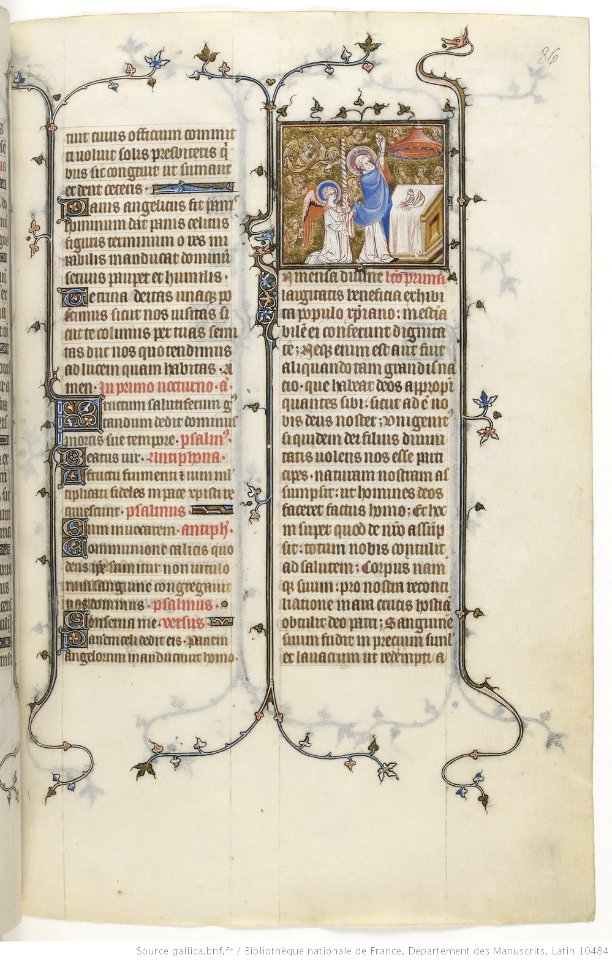 86
tuit cuius officium commit
ti voluit solis presbiteris q̄
bus sic congruit ut sumant
et dent ceteris.
Panis angelicus fit panis
hominum dat panis celicus
figuris terminum o res mi
rabilis manducat dominum
servus pauper et humilis.
Te trina deitas unaq; po
scimus sicut nos visitas si
cut te colimus per tuas semi
tas duc nos quo tendimus
ad lucem quam habitas. A
men. In primo nocturno. a.
Fructum salutiferum g
tandum dedit dominus
mortis sue tempore. psalm9.
Beatus vir. Antiphona.
A fructu frumenti et vini ml
tiplicati fideles in pace xpisti re
quiescunt. psalmus
Cum invocarem. antiph.
Communione calicis quo
deus ipse sumitur non vitulo
rum sanguine congregavit
nos dominus. psalmus.
Conserva me. versus.
Panem celi dedit eis. Panem
angelorum manducavit homo.
Inmensa divine lec̄o prima
largitatis beneficia exhibi
ta populo xp̄iano: inestia
bilem ei conferunt dignita
tē; Neq; enim est aut fuit
aliquando tam grandis na
cio. que habeat deos appropī
quantes sibi: sicut adē̄ no
bis deus noster; Unigenit9
siquidem dei filius divini
tatis volens nos esse parti
cipes. naturam nostram as
sumpsit: ut homines deos
faceret factus homo; Et hoc
insuper quod de nr̄o assūp
sit: totum nobis contulit
ad salutem; Corpus nam
q; suum: pro nostra reconci
liatione in ara crucis hostiā
obtulit deo patri; Sanguinē
suum fudit in precium siml̄
et lavacrum ut redempti a
Source gallica.bnf.fr / Bibliothèque nationale de France. Département des Manuscrits. Latin 10484